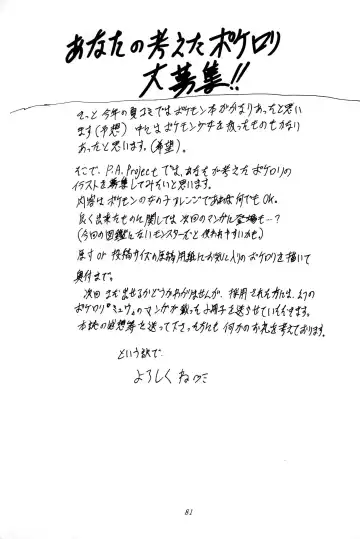 あなたの考えたポケロリ
大募集!!
きっと今年の夏コミではポケモン本がかなりあったと思い
ます(予想) 中にはポケモン少女を扱ったものも少ない
あったと思います。(希望)。
そこで、P.A.Projectでは、あなたが考えたポケロリの
イラストを募集してみたいと思います。
内容はポケモンの女の子アレンジであれば何でもOk.
良く出来たものに関しては次回のマンガに登場も…?
(今回の図鑑にないモンスターだと使われやすいかも。)
原寸or 投稿サイズの原稿用紙にお気に入りのポケロリを描いて
奥付まで。
次回 まだ出せるかどうかわかりませんが、採用された方には、幻の
ポケロリ『ミュウ』のマンガが載った小冊子を送らせていただきます。
本誌の感想等を送って下さった方にも 何かのお礼を考えております。
という訳で、
よろしく ねっ
81